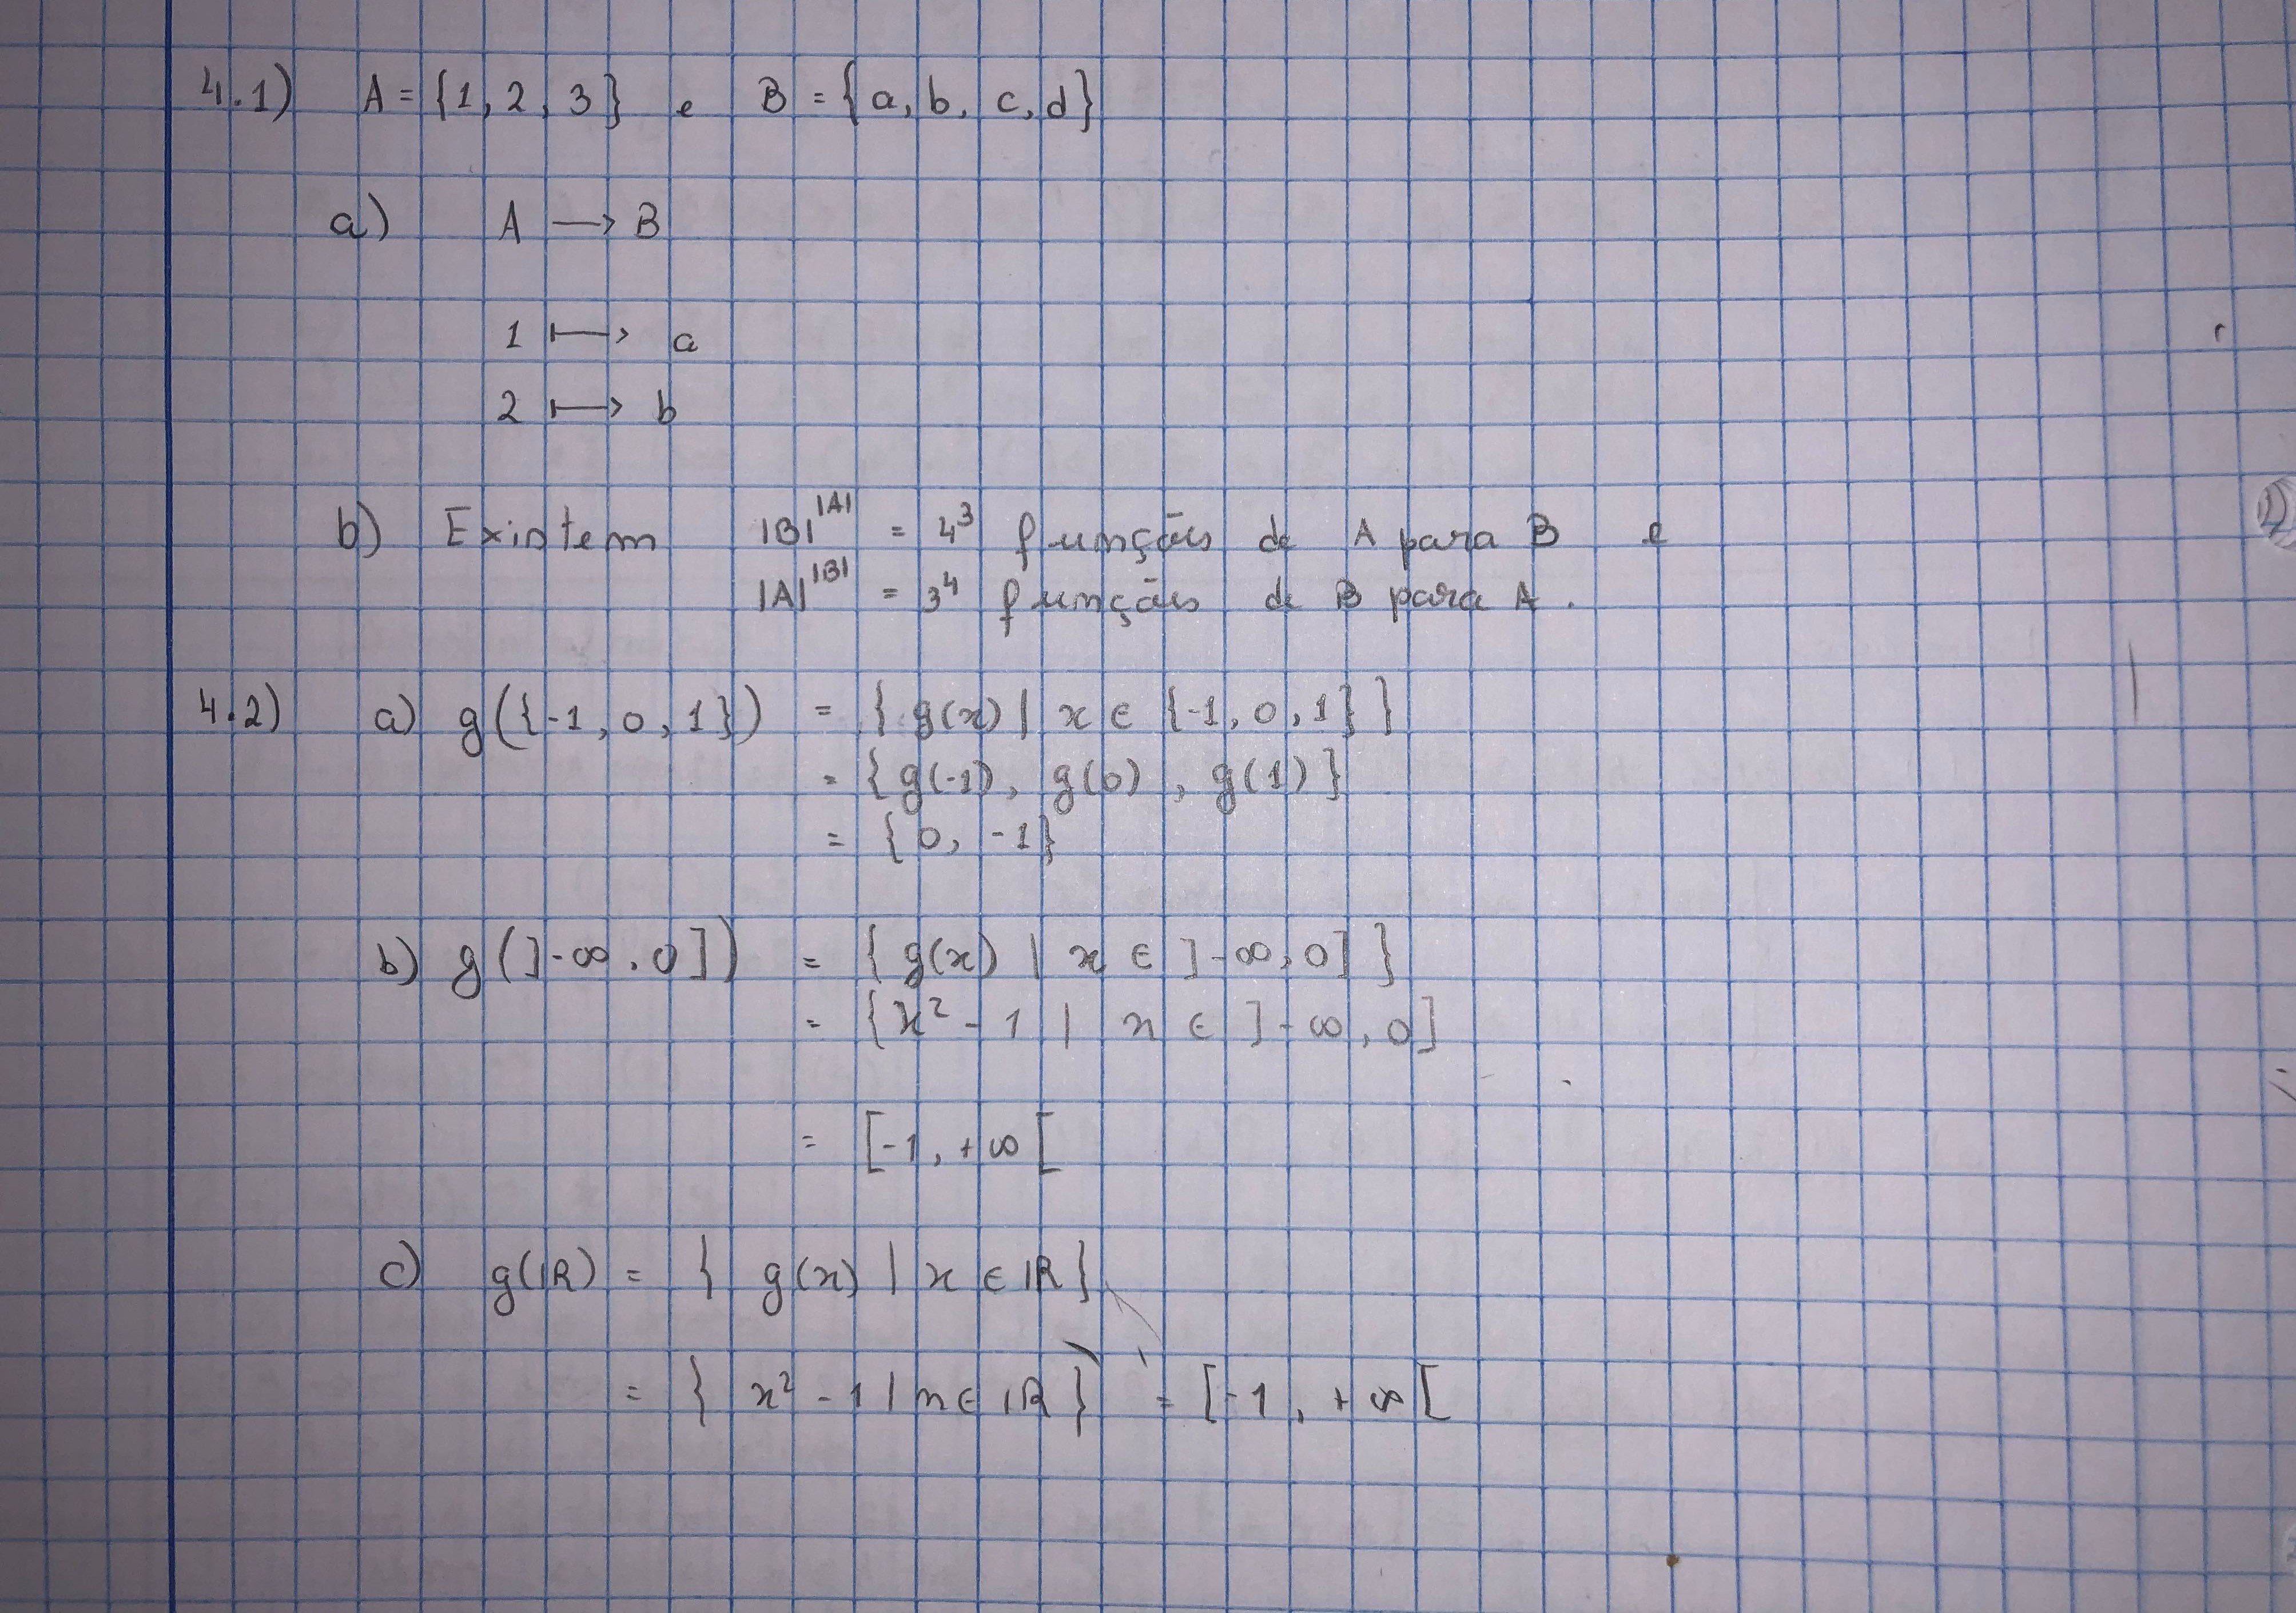 4.1) A = {1, 2, 3} e B = {a, b, c, d}
a) A → B
1 ↦ a
2 ↦ b
b) Existem |B|^|A| = 4³ funções de A para B e
|A|^|B| = 3⁴ funções de B para A.
4.2) a) g({-1, 0, 1}) = {g(x) | x ∈ {-1, 0, 1}}
= {g(-1), g(0), g(1)}
= {0, -1}
b) g(]-∞, 0]) = {g(x) | x ∈ ]-∞, 0]}
= {x² - 1 | x ∈ ]-∞, 0]
= [-1, +∞[
c) g(ℝ) = {g(x) | x ∈ ℝ}
= {x² - 1 | x ∈ ℝ} = [-1, +∞[